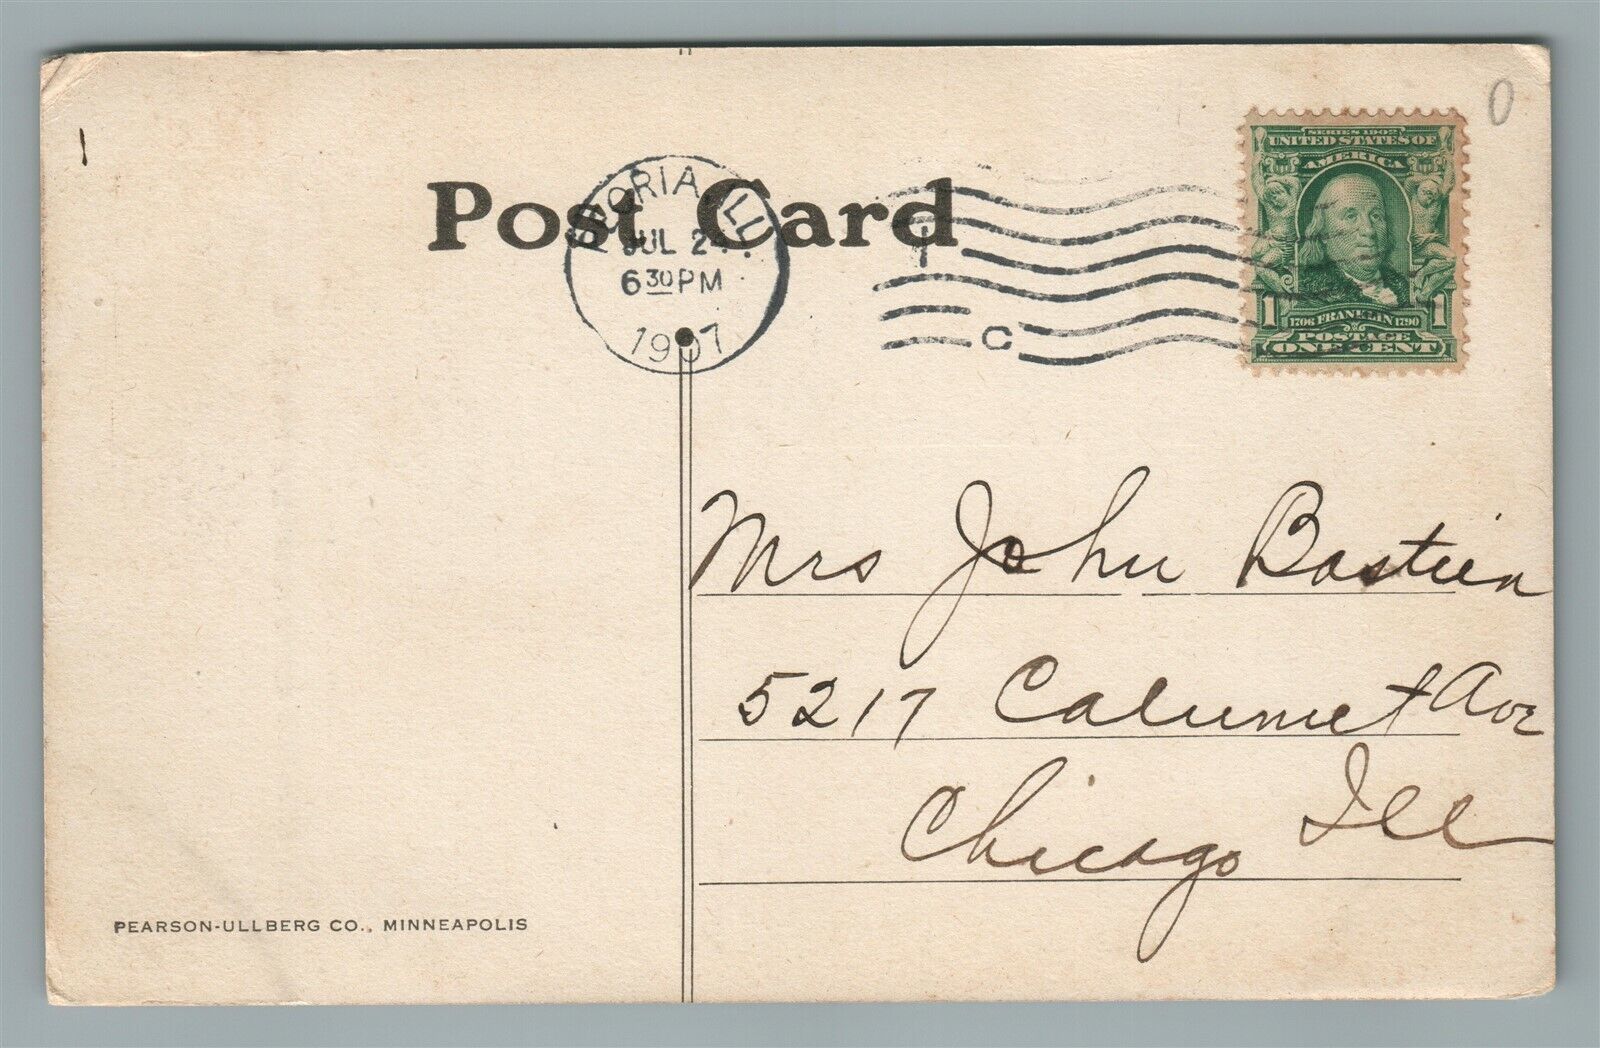 Post Card
PEORIA, ILL.
JUL 24
6 30 PM
1907
1
C
SERIES 1902
UNITED STATES OF
AMERICA
1 1706 FRANKLIN 1790 1
POSTAGE
ONE CENT
0
Mrs John Bastien
5217 Calumet Ave
Chicago Ill
PEARSON-ULLBERG CO., MINNEAPOLIS